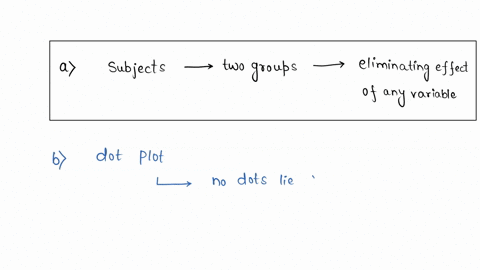 a) Subjects → two groups → eliminating effect
of any variable
b) dot plot
↳ no dots lie